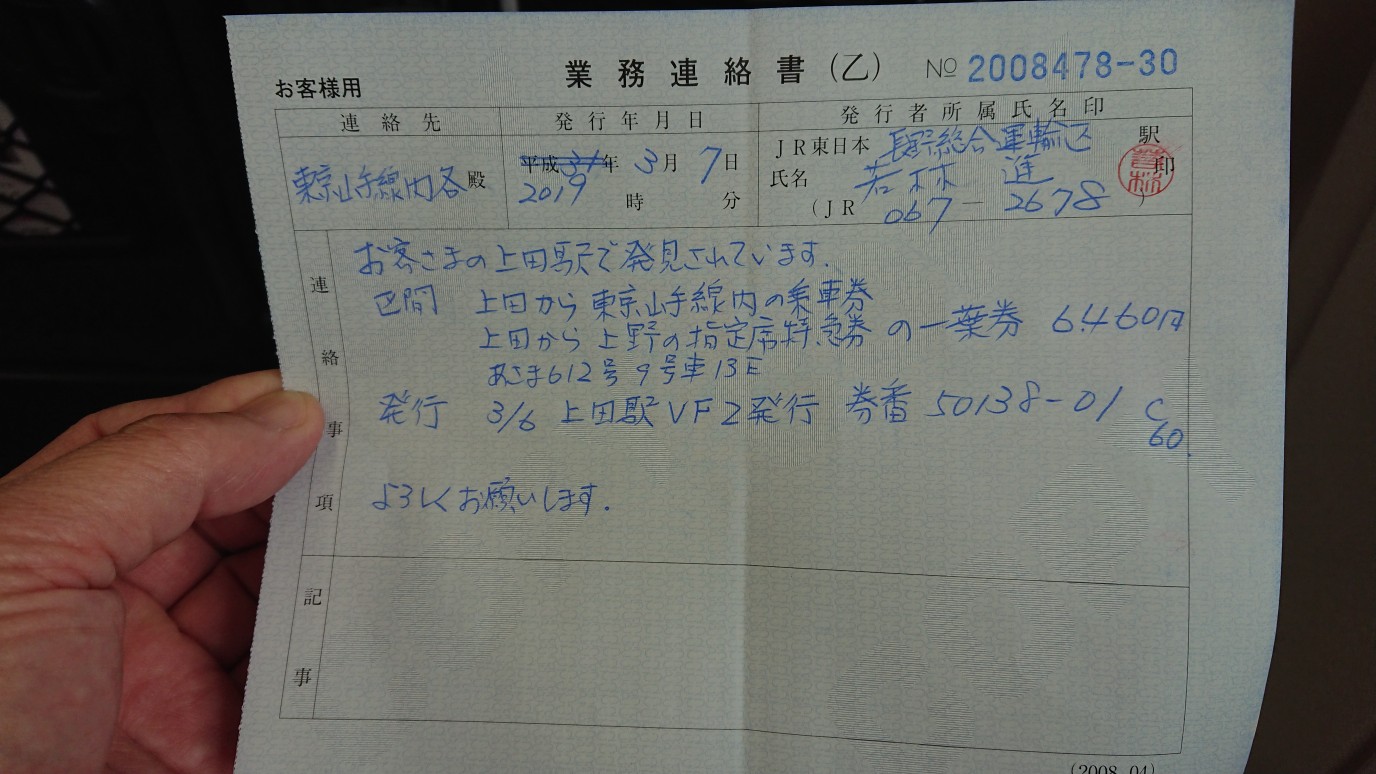 お客様用
業務連絡書(乙) №2008478-30
連絡先 発行年月日 発行者所属氏名印
東京山手線内各殿
平成31年 3月 7日
2019 時 分
JR東日本 長野総合運輸区 駅
氏名 若林 進 印
(JR 067-2678)
連絡事項
お客さまの上田駅で発見されています.
区間 上田から東京山手線内の乗車券
上田から上野の指定席特急券の一葉券 6,460円
あさま612号 9号車13E
発行 3/6 上田駅VF2発行 券番 50138-01 C60
よろしくお願いします.
記事
(2008.04)